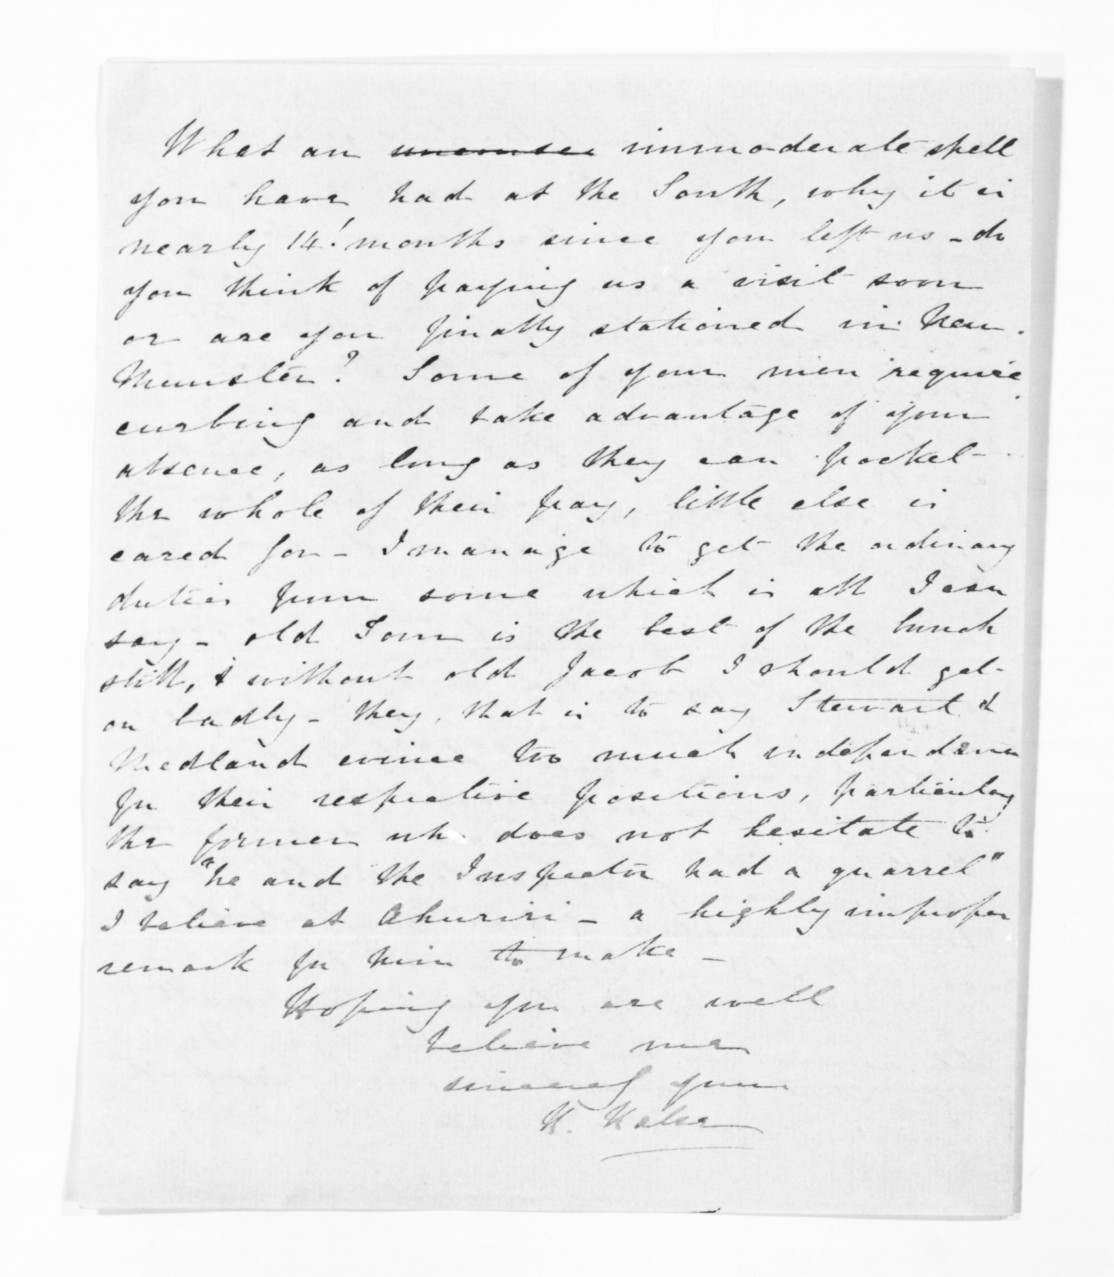 What an immoderate spell
you have had at the South, why it is
nearly 14! months since you left us - do
you think of paying us a visit soon
or are you finally stationed in New
Munster? Some of your men require
curbing and take advantage of your
absence, as long as they can pocket
the whole of their pay, little else is
cared for - I manage to get the ordinary
duties from some which is all I can
say - old Tom is the best of the bunch
still, & without old Jacob I should get
on badly - they, that is to say Stewart &
Medland evince too much independence
for their respective positions, particularly
the former wh. does not hesitate to
say "he and the Inspector had a quarrel"
I believe at Ahuriri - a highly improper
remark for him to make -
Hoping you are well
believe me
sincerely yours
H. Halse